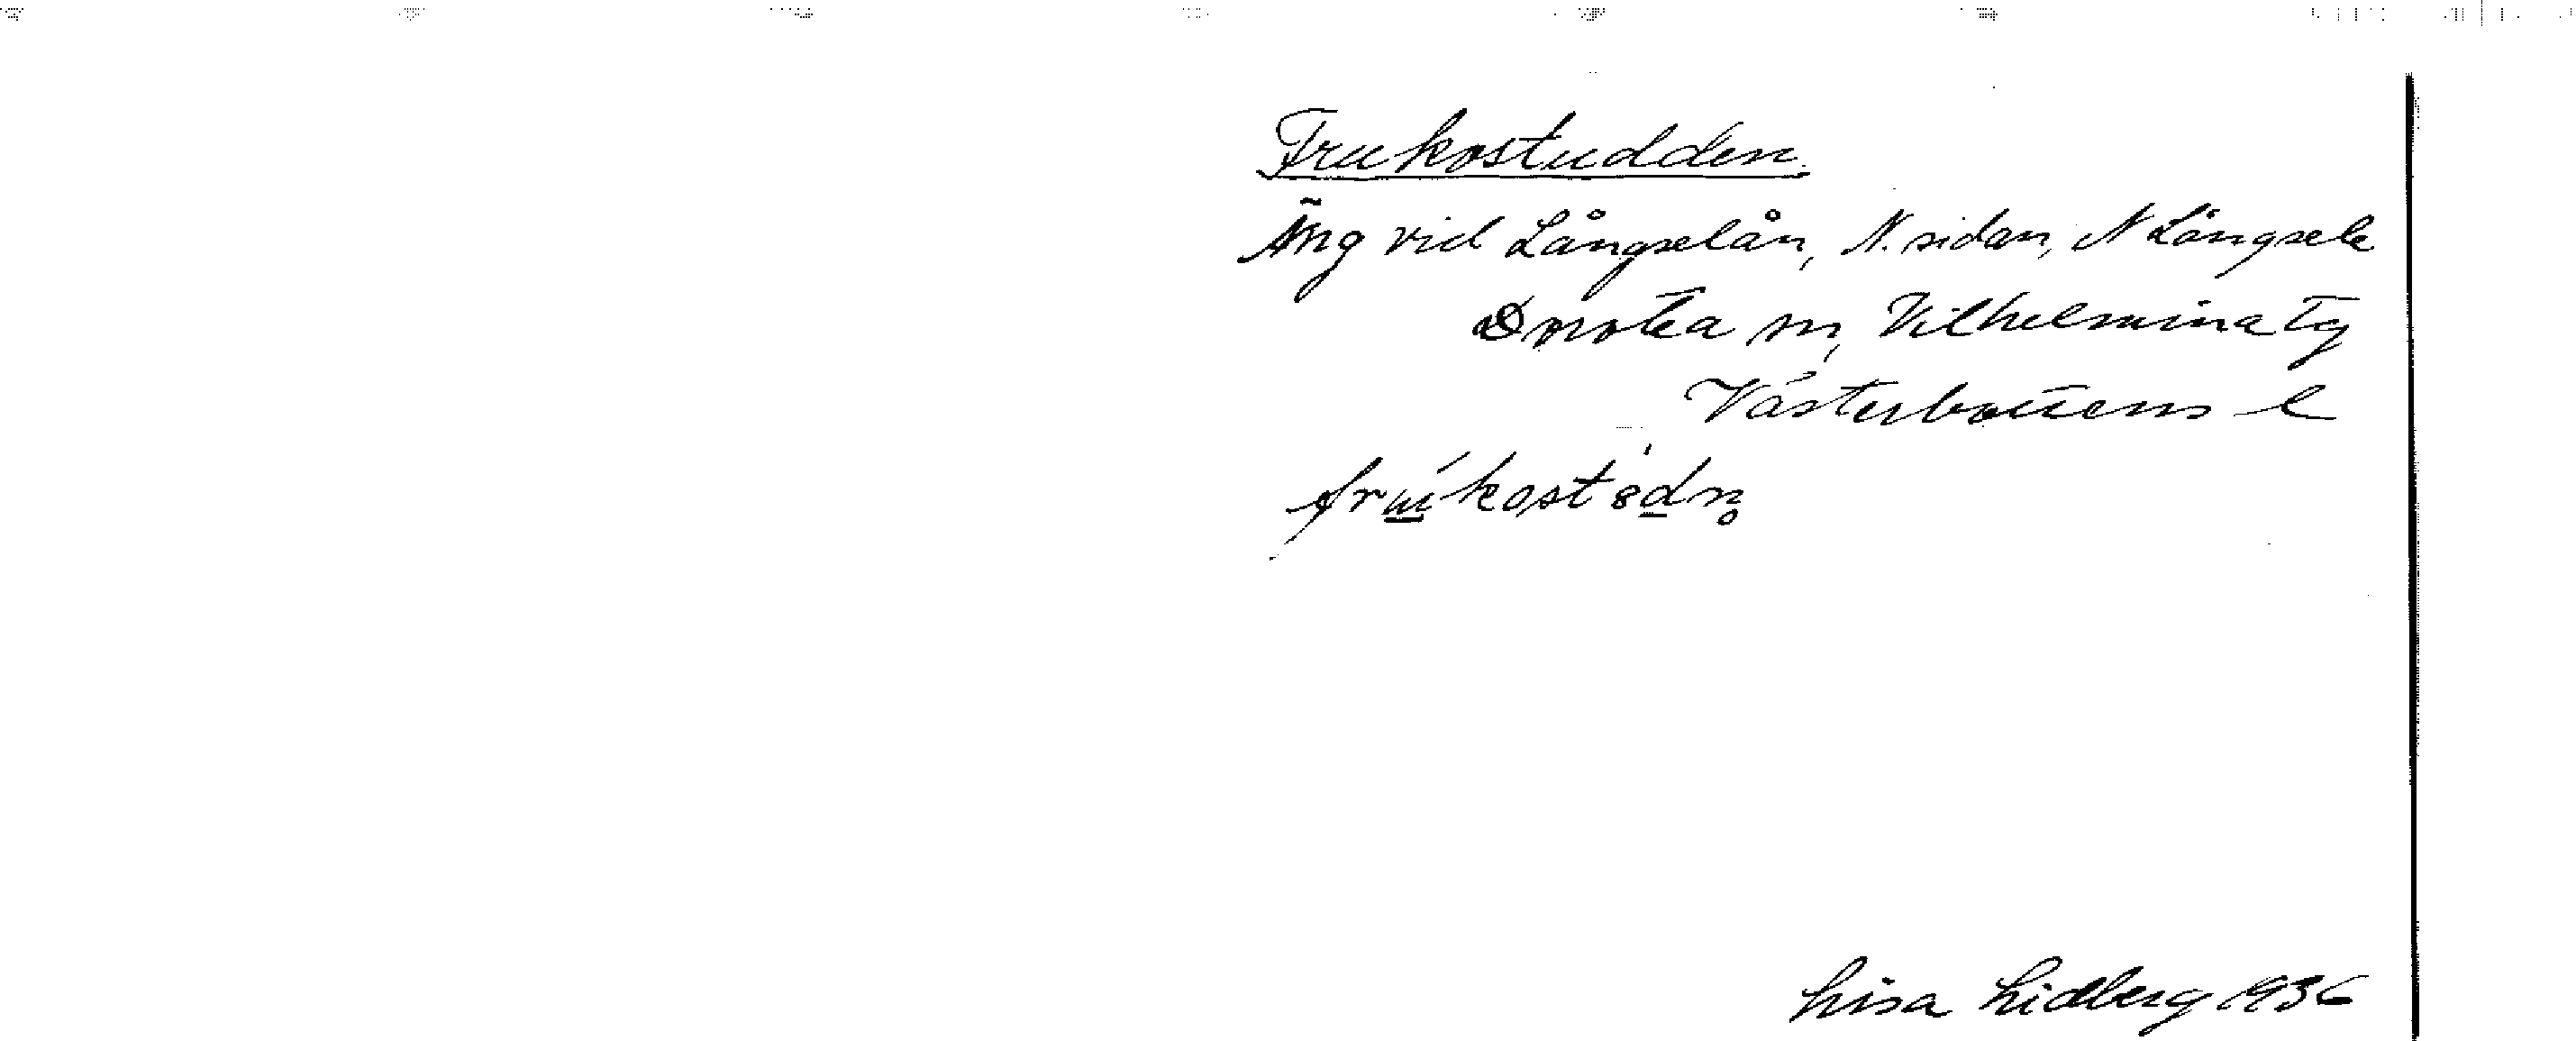 Frukostudden.
Äng vid Långselån, N. sidan, N Långsele
Dorotea sn, Vilhelmina Tg
Västerbottens l
frukostädn̥
Lisa Lidberg 1936